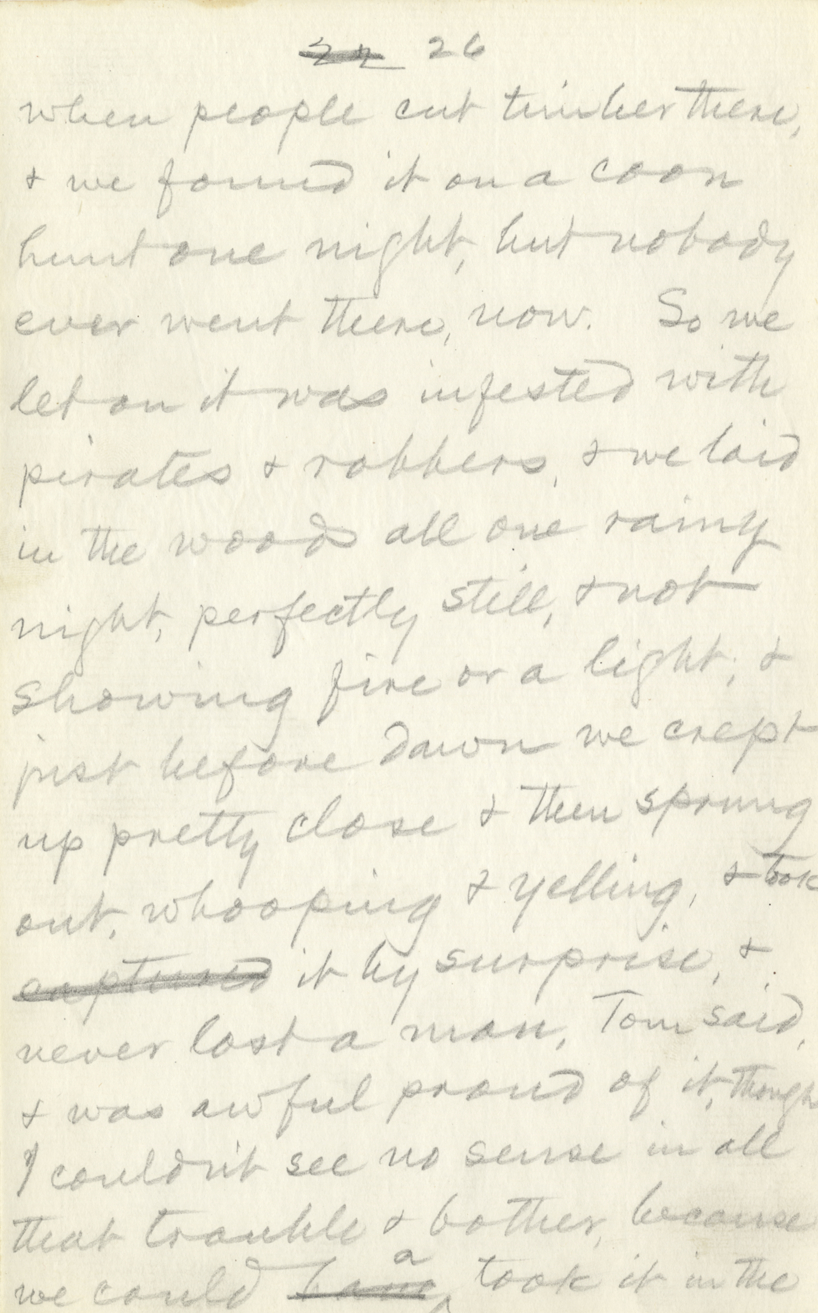 22 26
when people cut timber there,
& we found it on a coon
hunt one night, but nobody
ever went there, now. So we
let on it was infested with
pirates & robbers, & we laid
in the woods all one rainy
night, perfectly still, & not
showing fire or a light; &
just before dawn we crept
up pretty close & then sprung
out, whooping & yelling, & took
captured it by surprise, &
never lost a man, Tom said,
& was awful proud of it, though
I couldn't see no sense in all
that trouble & bother, because
we could have a took it in the